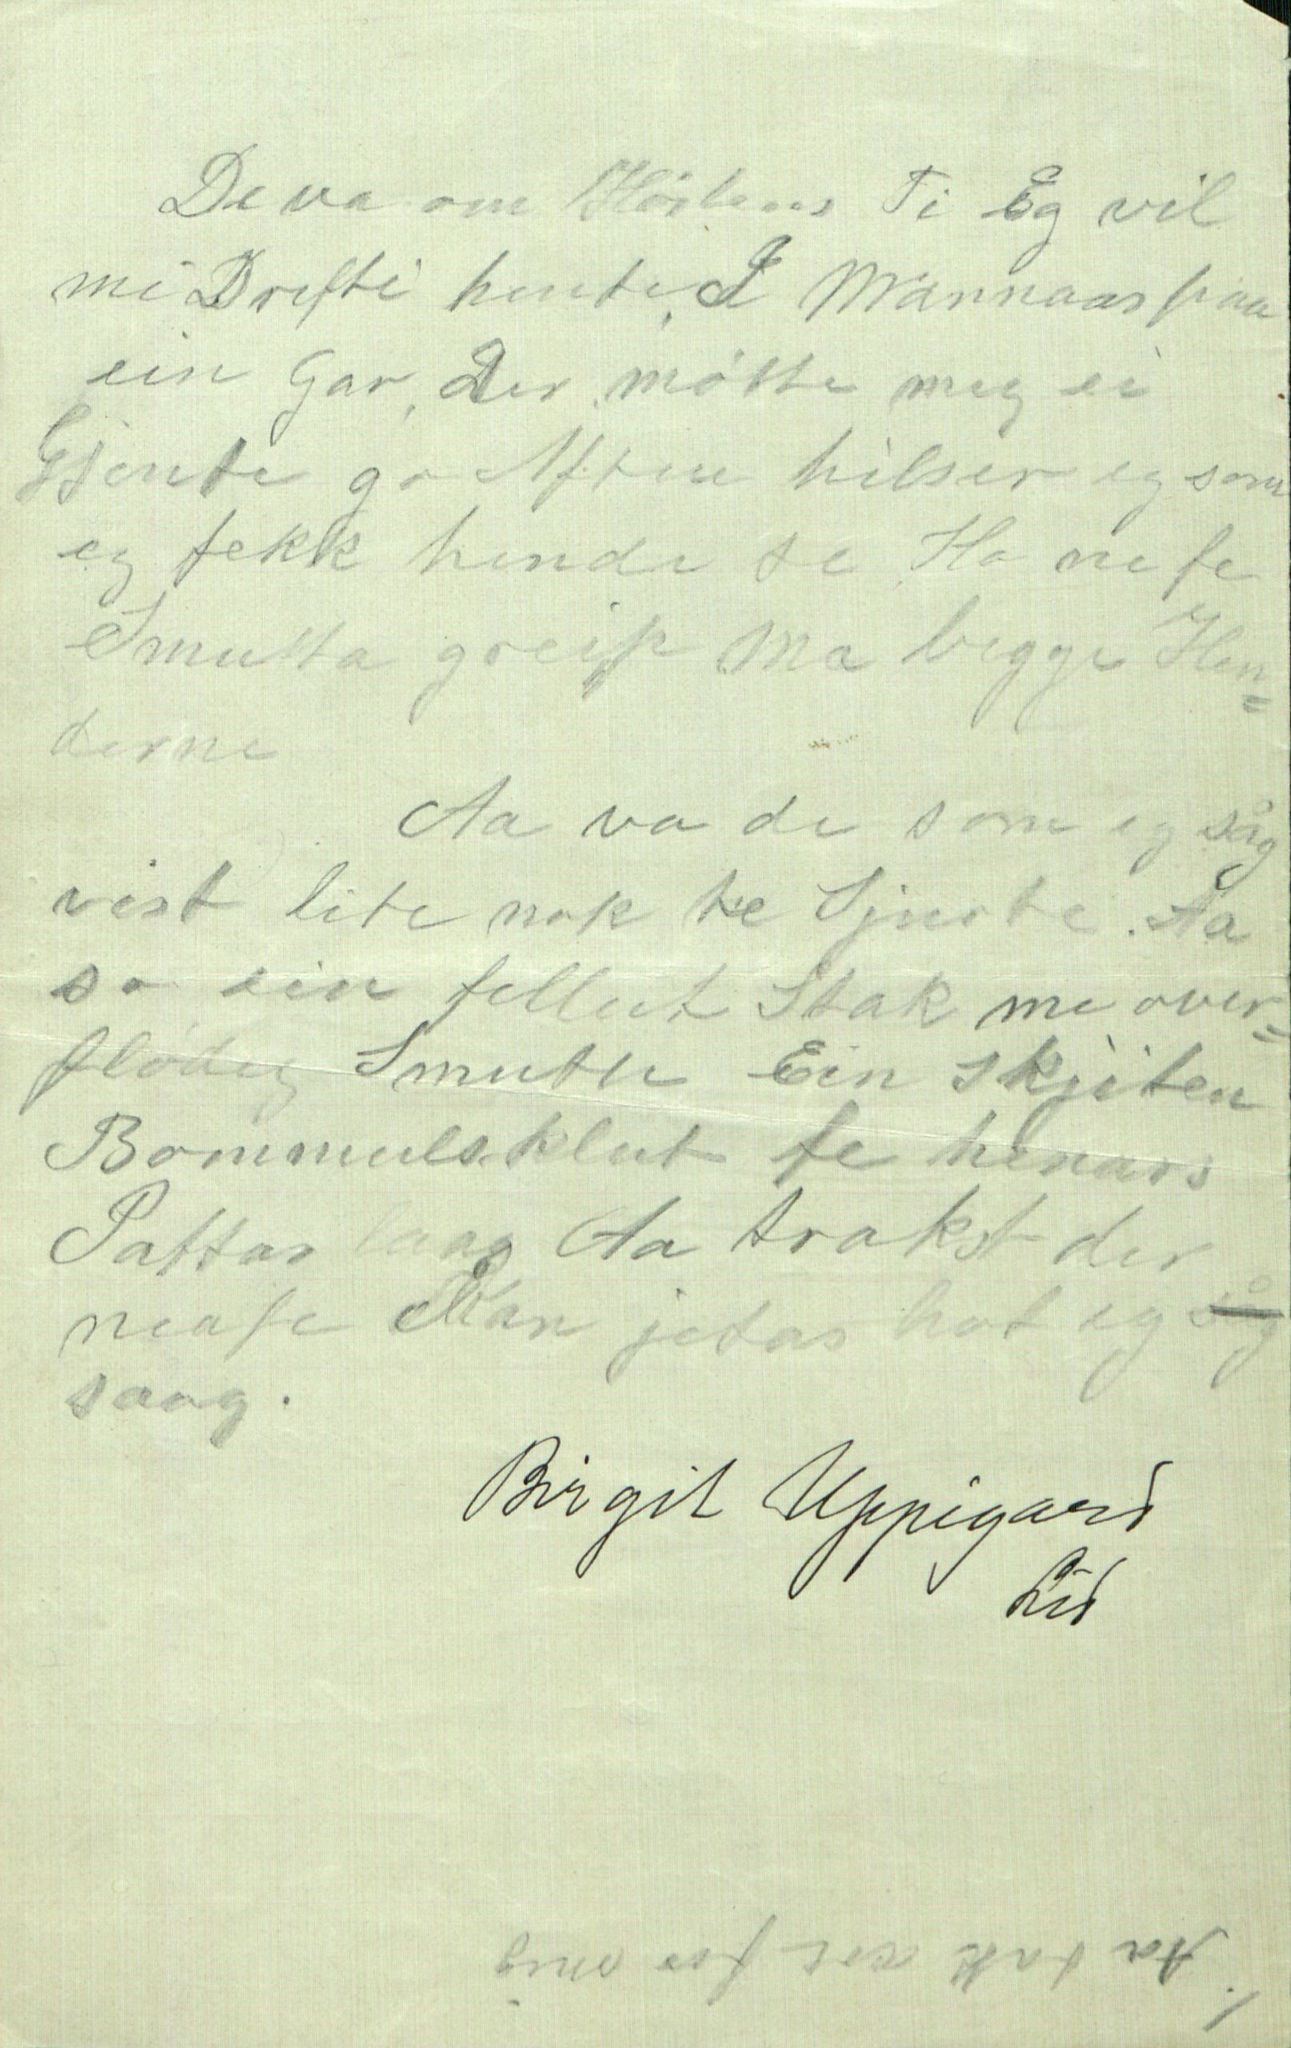 De va om Höstens Ti Eg vil
mi Drifti hente, I Mannaas paa
ein Gar, Der mötte meg ei
Gjente go Aften hilser eg som
eg fekk hende se Ho ne fe
Smutta greip Ma begge Hen=
derne
Aa va de som eg såg
vist lite nok te Sjurte. Aa
so ein fellut Stak me over=
flödig Smutte Ein skjiten
Bommulsklut fe henars
Pattar laag Aa trakst der
neafe Kan jetas hot eg såg
saag.
Birgit Uppigard
Lid
Aa takk sol for mig